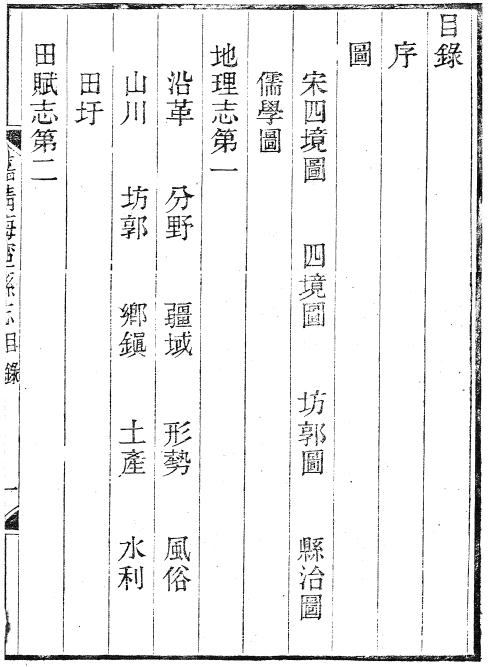 目錄
序
圖
宋四境圖 四境圖 坊郭圖 縣治圖
儒學圖
地理志第一
沿革 分野 疆域 形勢 風俗
山川 坊郭 鄉鎮 土產 水利
田圩
田賦志第二
嘉靖海寧縣志目錄 一